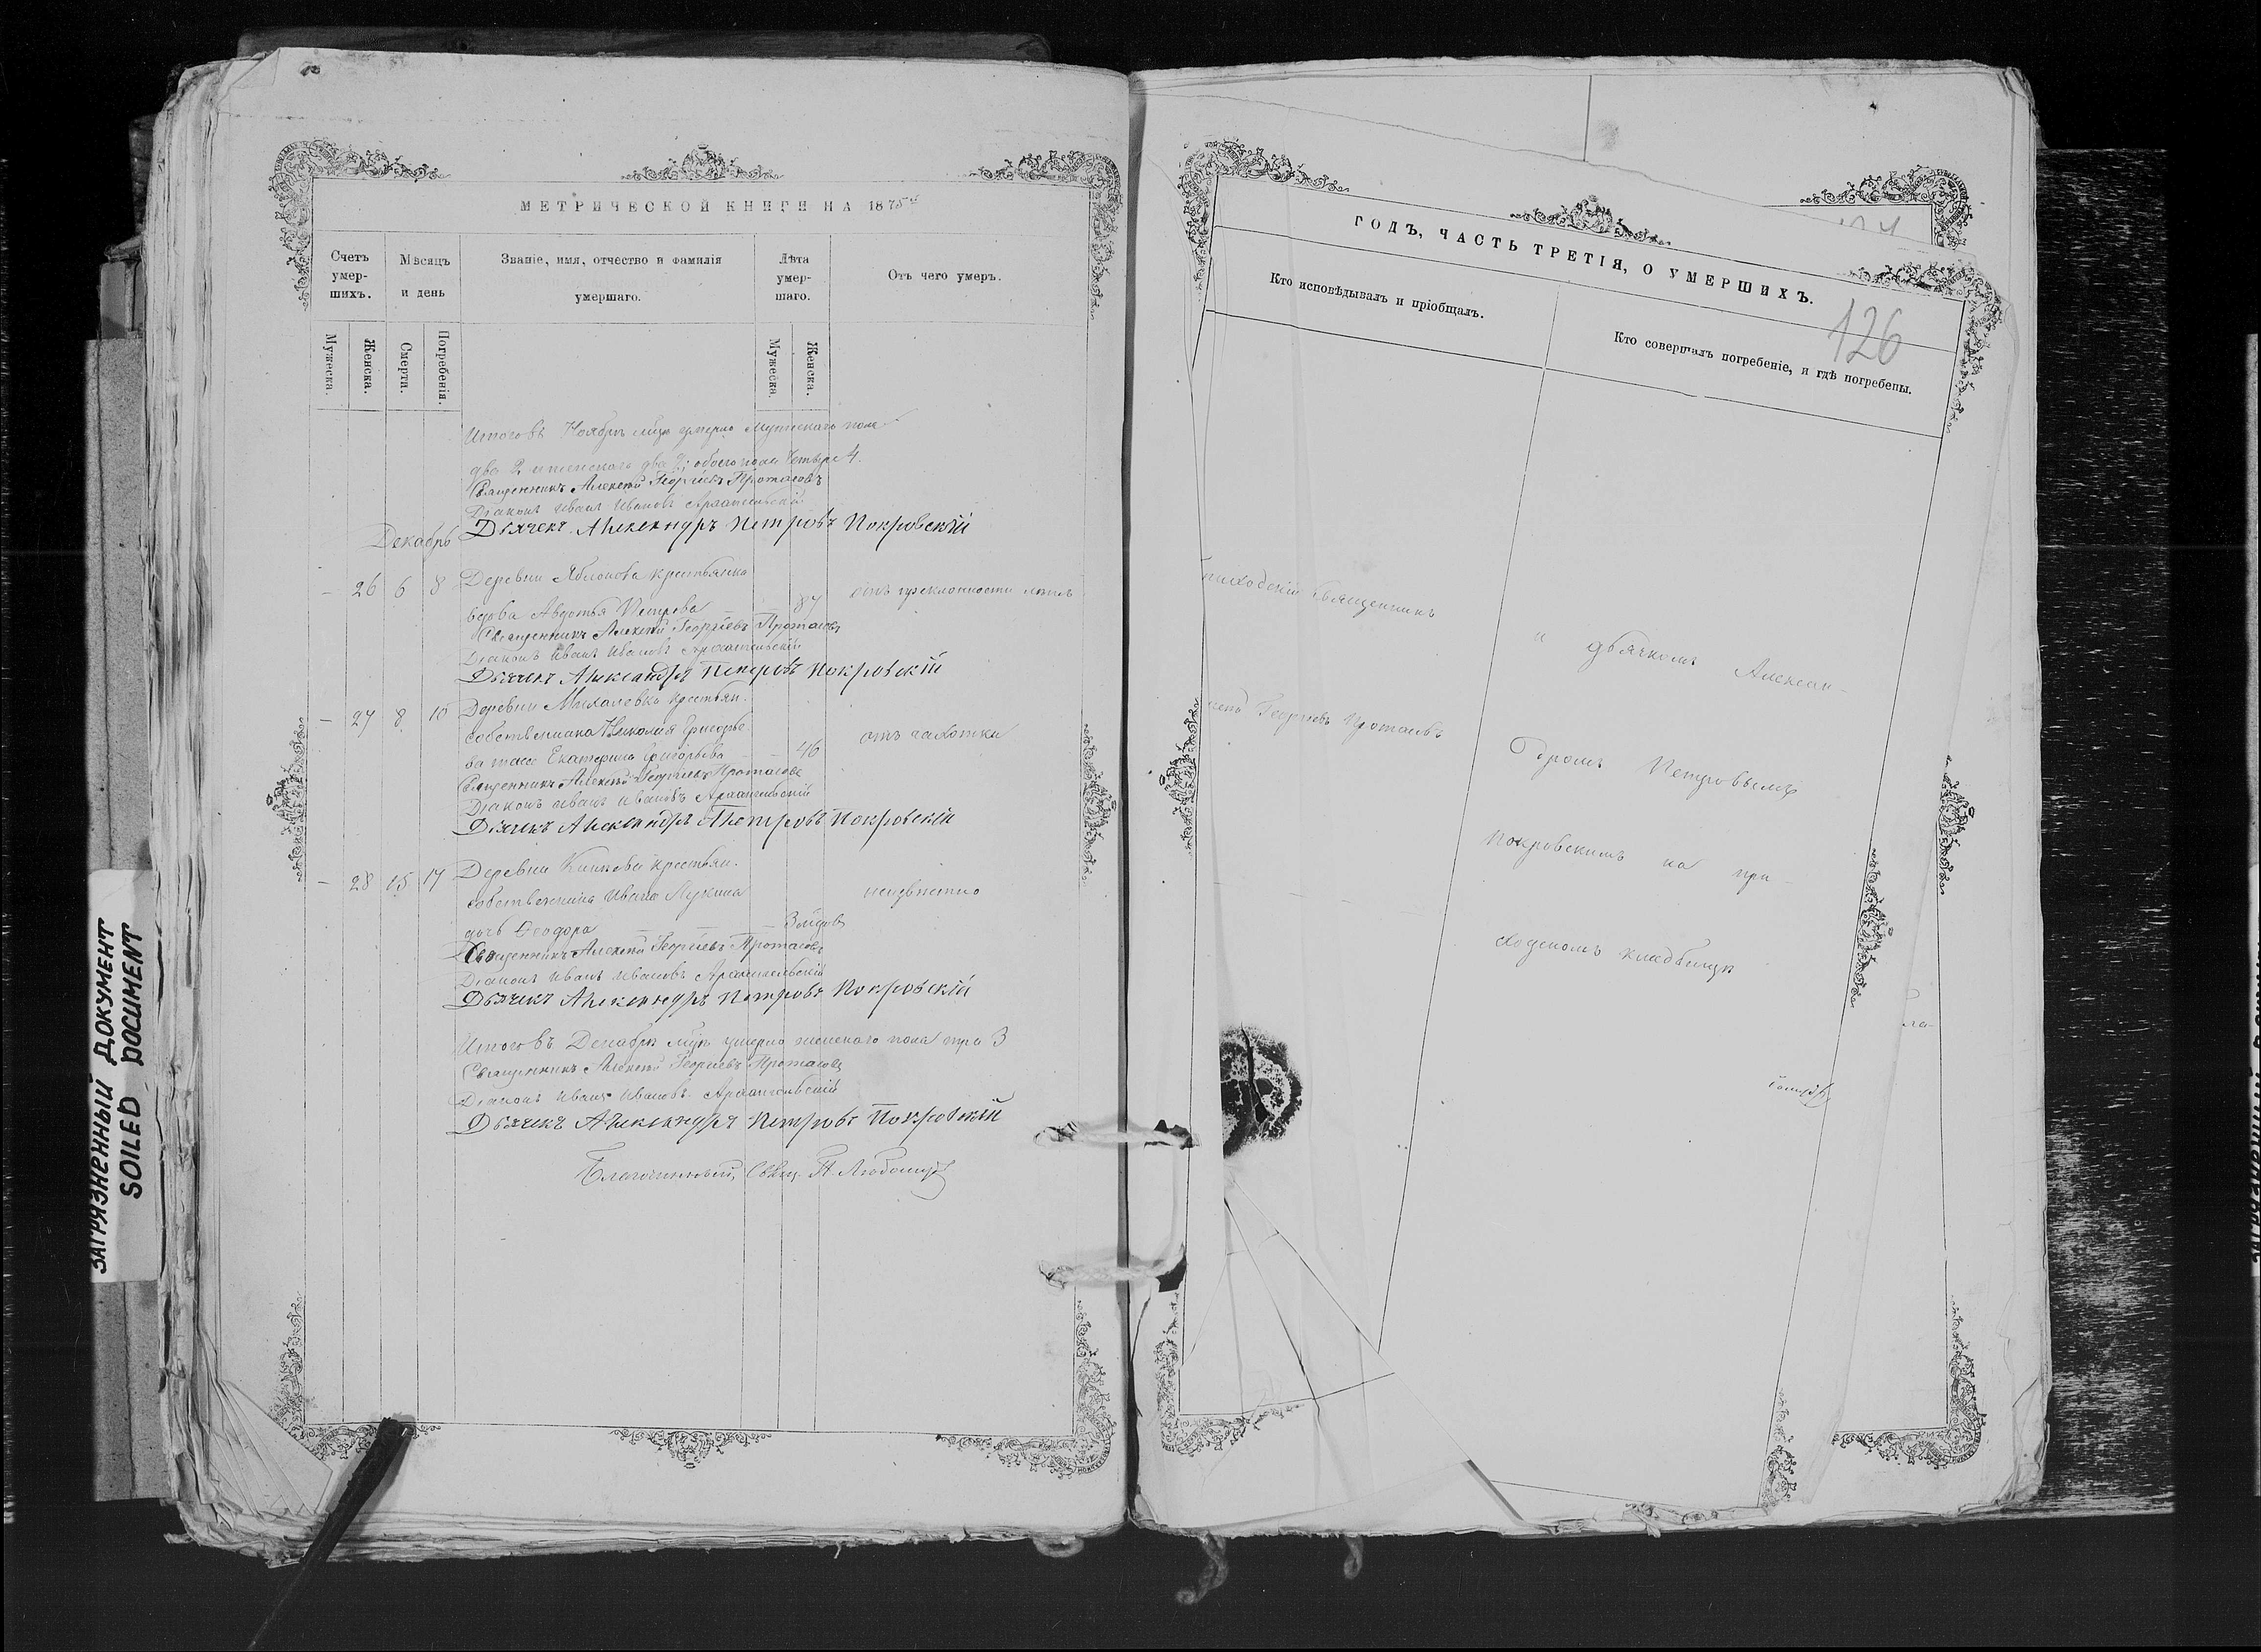 МЕТРИЧЕСКОЙ КНИГИ НА 1875й
Счетъ умер-шихъ.
Мѣсяцъ и день
Званіе, имя, отчество и фамилія умершаго.
Лѣта умер-шаго.
Отъ чего умеръ.
Мужеска.
Женска.
Смерти.
Погребенія.
Мужеска.
Женска.
Итого въ Ноябрѣ умерло мужескаго пола
два 2 и женскаго два 2; обоего пола четыре 4.
Священникъ Алексѣй Георгіевъ Протасовъ
Діаконъ Иванъ Ивановъ Архангельскій
Дьячекъ Александръ Петровъ Покровскій
Декабрь
– 26 6 8 Деревни Яблонова крестьянка
вдова Авдотья Петрова 87 отъ преклонности лѣтъ
Священникъ Алексѣй Георгіевъ Протасовъ
Діаконъ Иванъ Ивановъ Архангельскій
Дьячекъ Александръ Петровъ Покровскій
– 27 8 10 Деревни Михалевки крестьян.
собственника Николая Григорье-
ва жена Екатерина Григорьева 46 отъ чахотки
Священникъ Алексѣй Георгіевъ Протасовъ
Діаконъ Иванъ Ивановъ Архангельскій
Дьячекъ Александръ Петровъ Покровскій
– 28 15 17 Деревни крестьян.
собственника Ивана Лукина неизвѣстно
дочь Ѳеодора
Священникъ Алексѣй Георгіевъ Протасовъ
Діаконъ Иванъ Ивановъ Архангельскій
Дьячекъ Александръ Петровъ Покровскій
Итого въ Декабрѣ умерло женскаго пола три 3
Священникъ Алексѣй Георгіевъ Протасовъ
Діаконъ Иванъ Ивановъ Архангельскій
Дьячекъ Александръ Петровъ Покровскій
Благочинный, Свящ.
ГОДЪ, ЧАСТЬ ТРЕТІЯ, О УМЕРШИХЪ.
126
Кто исповѣдывалъ и пріобщалъ.
Кто совершалъ погребеніе, и гдѣ погребены.
священникъ
Георгіевъ Протасовъ
и дьячкомъ Алексан-
дромъ Петровымъ
Покровскимъ на при-
ходскомъ кладбищѣ
ЗАГРЯЗНЕННЫЙ ДОКУМЕНТ
SOILED DOCUMENT